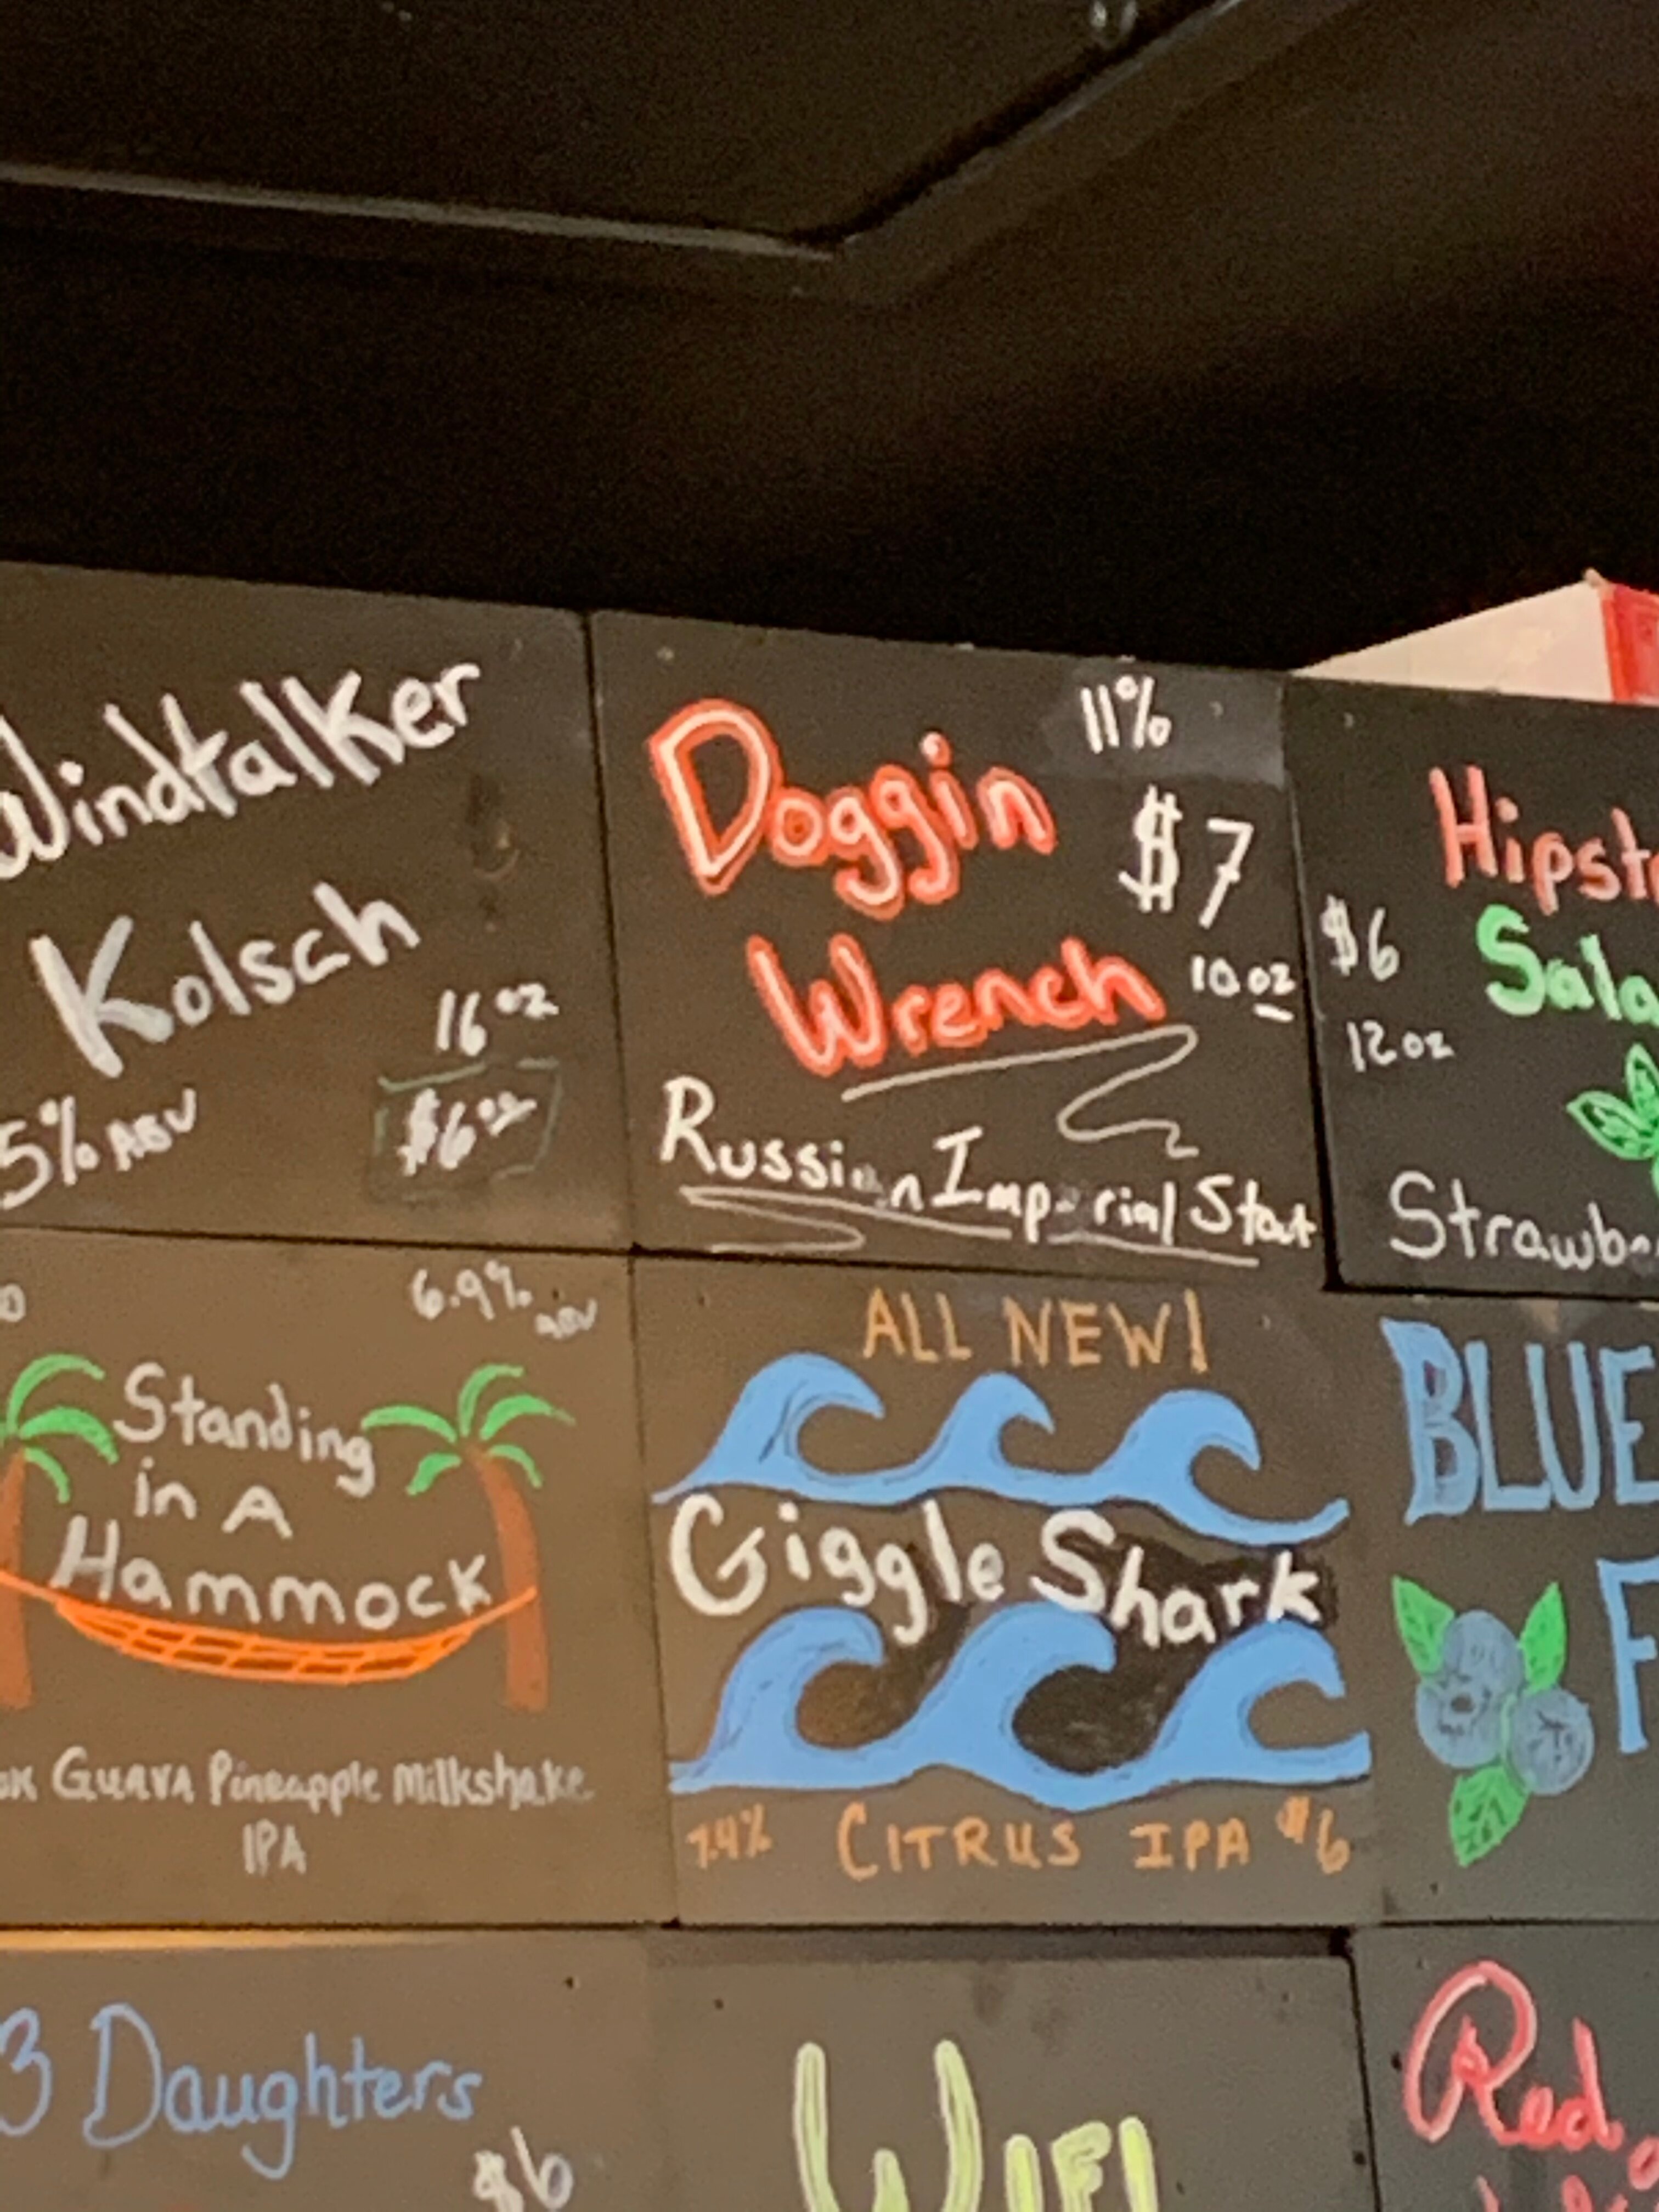 Windtalker
Kolsch
16 oz
5% ABV
$6.00
11%
Doggin
$7
Wrench
10 oz
Russian Imperial Stout
$6
12 oz
6.9% ABV
Standing
in A
Hammock
Guava Pineapple Milkshake
IPA
ALL NEW!
Giggle Shark
7.4% CITRUS IPA $6
BLUE
3 Daughters
$6
WIFI
Red